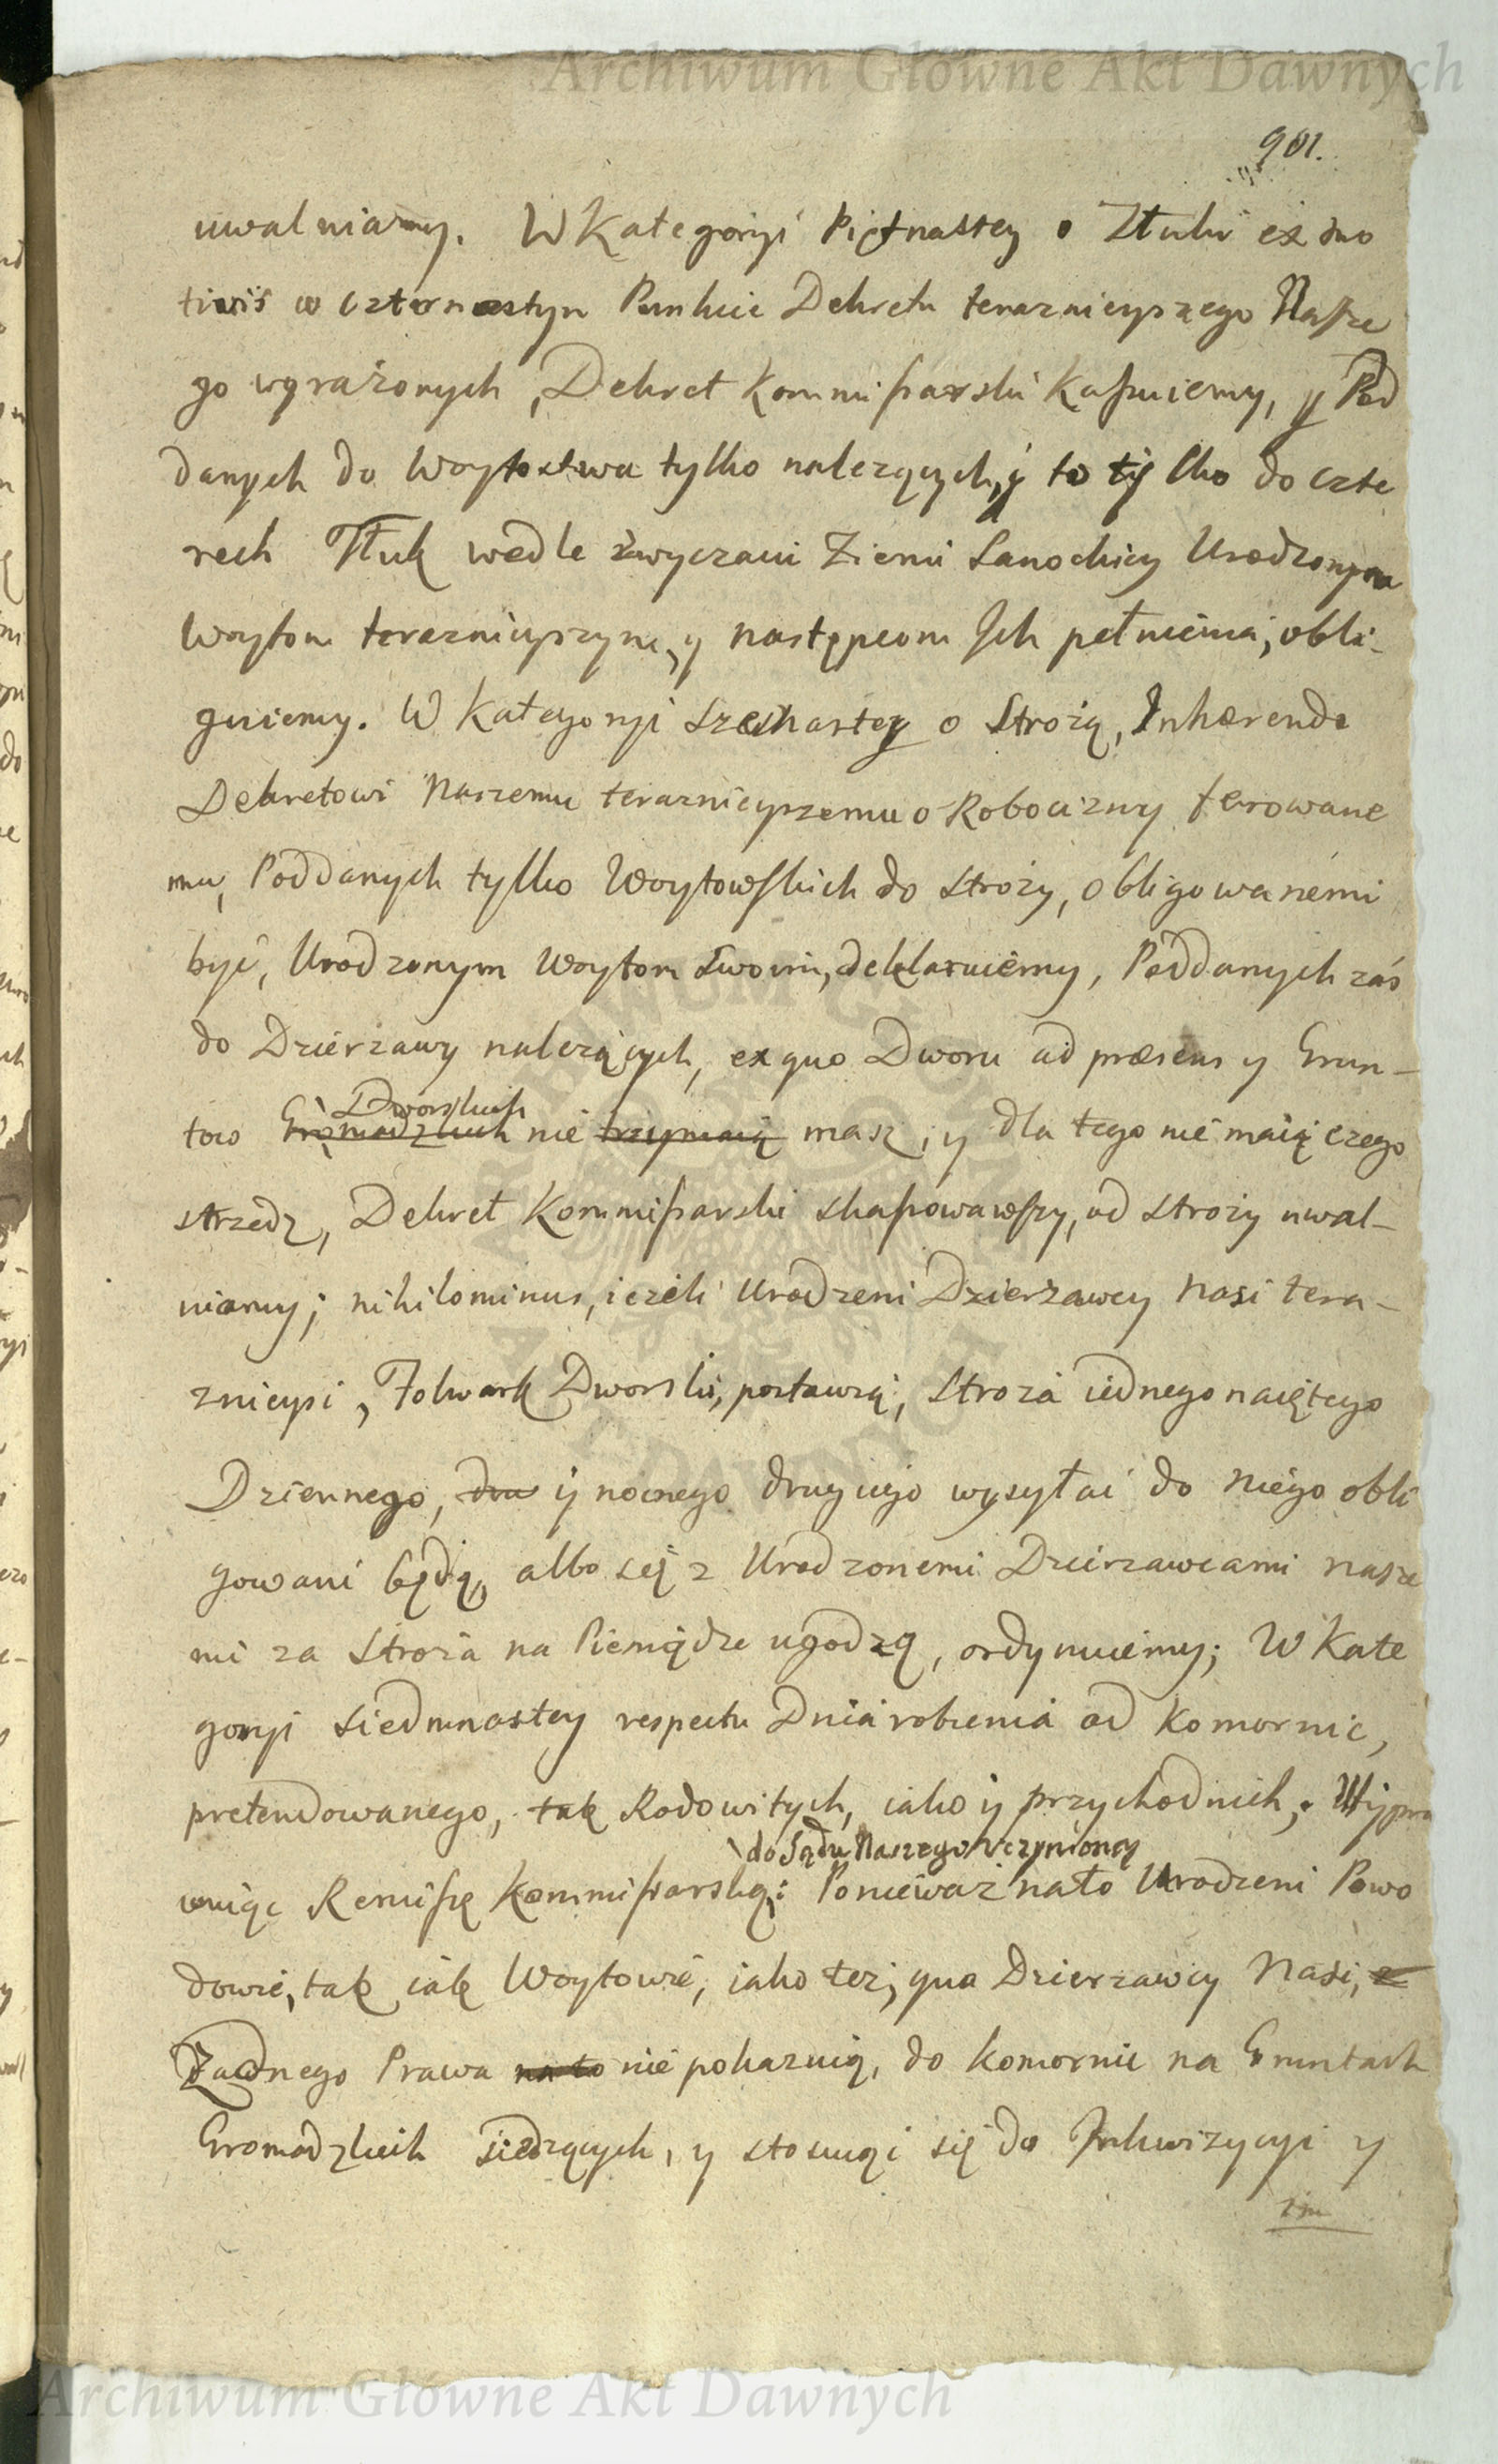 Archiwum Główne Akt Dawnych
901.
uwalniamy. W Kategoryi Piętnastey o Ztuki ex mo
tivis w czternastym Punkcie Dekretu teraznieyszego Nasze
go wyrażonych, Dekret Kommissarski Kassuiemy, y Pod
danych do Woytostwa tylko nalezących, y to tylko do czte
rech Tłuk wedle zwyczaiu Ziemi Sanockiey Urodzonym
Woytom teraznieyszym, y następcom Ich pełnienia, obli-
guiemy. W Kategoryi szesnastey o Strożą, Inhærendo
Dekretowi Naszemu teraznieyszemu o Robocizny ferowane
mu, Poddanych tylko Woytowskich do Stroży, obligowanemi
być, Urodzonym Woytom Swoim, deklaruiemy, Poddanych zaś
do Dzierzawy nalezących, ex quo Dworu ad præsens y Grun-
Dworskich
tow Gromadzkich nie trzymaią masz, y dla tego nie maią czego
strzedz, Dekret Kommissarski skassowawszy, od Stroży uwal-
niamy; nihilominus, iezeli Urodzeni Dzierżawcy Nasi tera-
znieysi, Folwark Dworski, postawią, Stroża iednego naiętego
Dziennego, dru y nocnego drugiego wysyłać do niego obli
gowani będą, albo się z Urodzonemi Dzierzawcami nasze
mi za Stroża na Pieniądze ugodzą, ordynuiemy; W Kate
goryi siedmnastey respectu Dnia robienia od Komornic,
pretendowanego, tak Rodowitych, iako y przychodnich; Wypra
do Sądu Naszego uczynioną
wuiąc Remissę Kommissarską: Ponieważ na to Urodzeni Powo
dowie, tak iak Woytowie, iako też, qua Dzierzawcy Nasi, z
Żadnego Prawa na to nie pokazuią, do Komornic na Gruntach
Gromadzkich siedzących, y stosuiąc się do Inkwizycyi y
im
Archiwum Główne Akt Dawnych